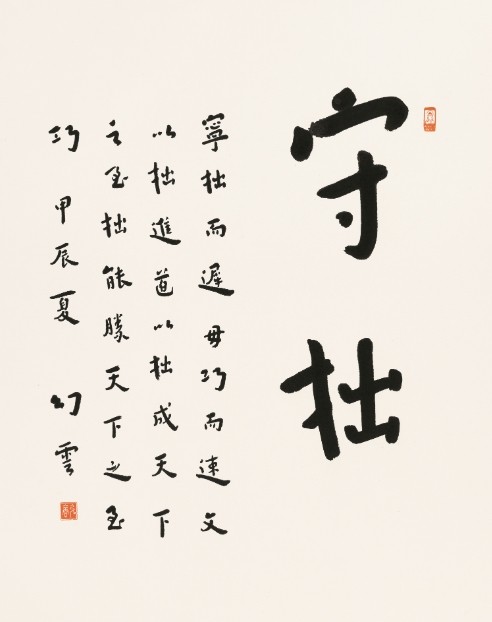 守拙
寧拙而遲毋巧而速文
以拙進道以拙成天下
之至拙能勝天下之至
巧 甲辰夏 幻雲